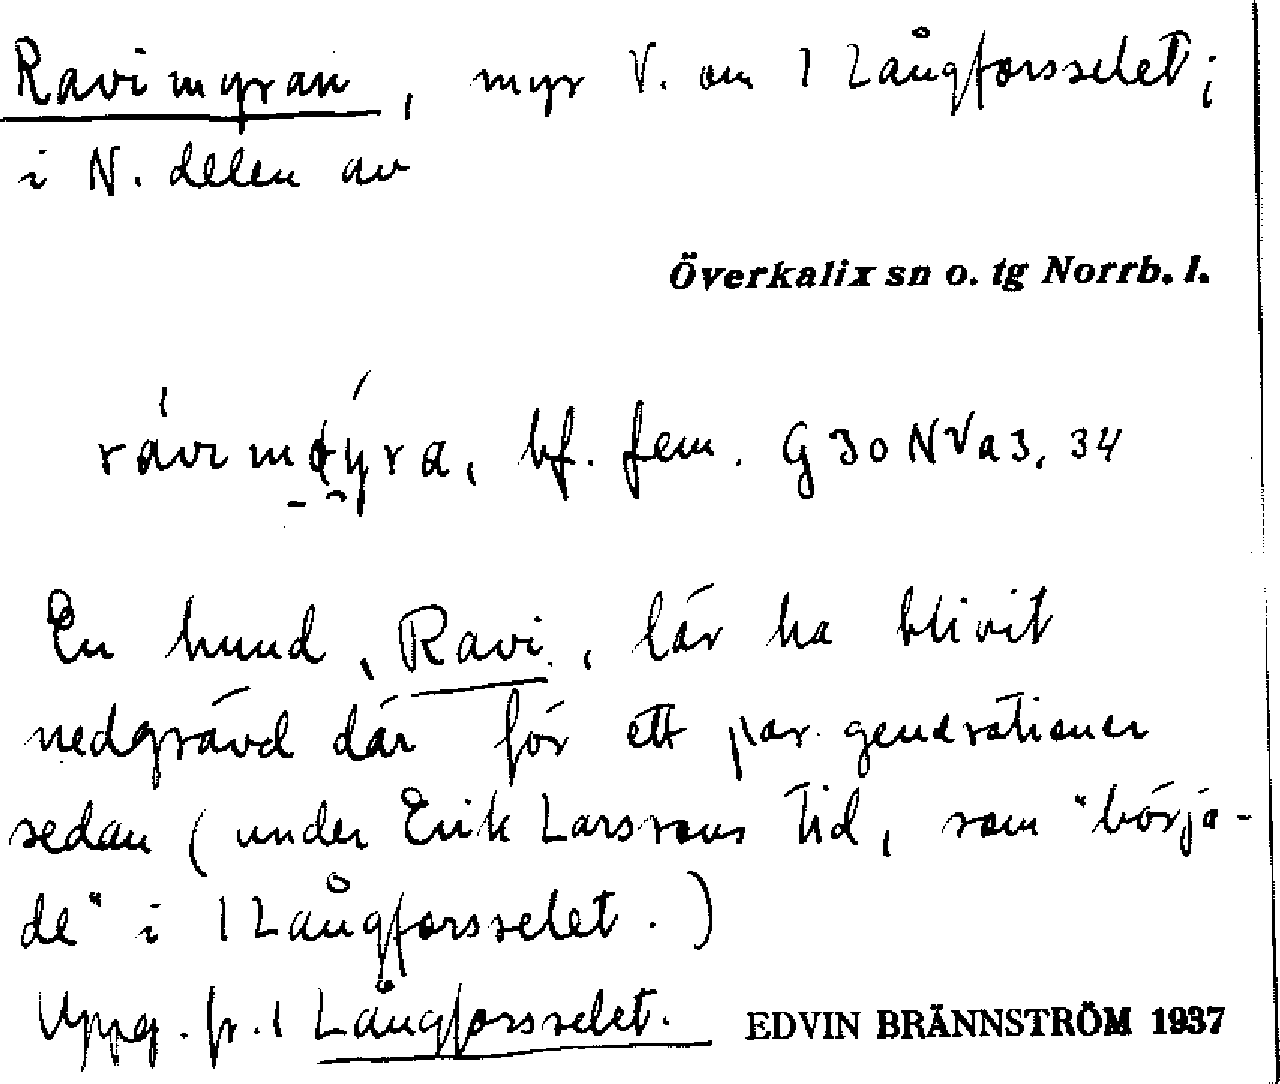 Ravimyran, myr V. om 1 Långforsselet;
i N. delen av
Överkalix sn o. tg Norrb. l.
bf. fem. G 30 NV a 3, 34
En hund, Ravi, lär ha blivit
nedgrävd där för ett par generationer
sedan (under Erik Larssons tid, som "börja-
de" i 1 Långforsselet.)
Uppg. fr. 1 Långforsselet. EDVIN BRÄNNSTRÖM 1937